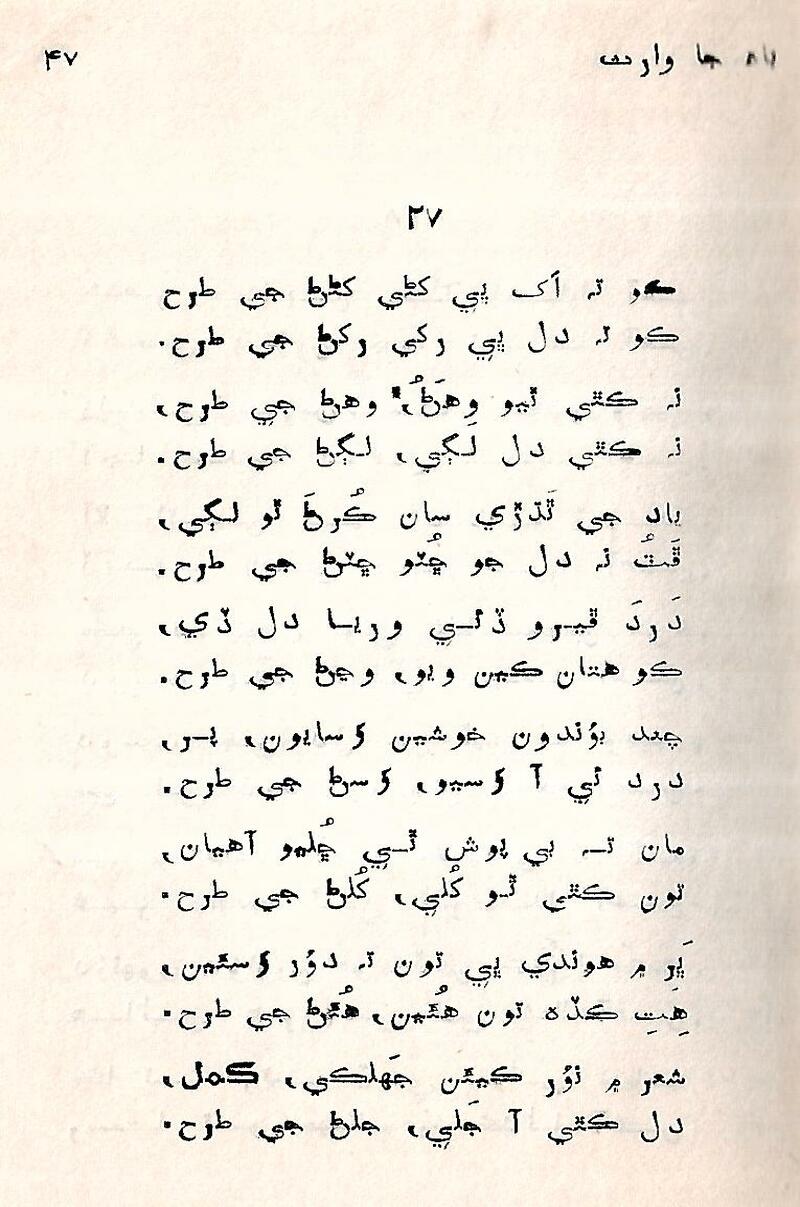 جا وارث
۴۷
۲۷
ڪو نہ اَک ڀي کڻي کڻڻ جي طرح
ڪو نہ دل ڀي رکي رکڻ جي طرح.
نہ ڪٿي ٿيو وِهَڻُ، وهڻ جي طرح،
نہ ڪٿي دل لَڳي، لڳڻ جي طرح.
ياد جي ٿَڌڙي سان ڪُرڻَ ٿو لڳي،
ڦَٽُ نہ دل جو ڇُٽو ڇٽڻ جي طرح.
دَردَ ڦيرو ڏئي وريا دل ڏي،
ڪو هتان ڪين ويو، وڃڻ جي طرح.
چند بوُندون خوشين وَسايون، پر،
درد ئي آ وَسيو، وَسڻ جي طرح.
مان تہ بي پوش ٿي ڇُليو آهيان،
تون ڪٿي ٿو کُلي، کُلڻ جي طرح.
ڀَرِ ۾ هوندي ڀي تون تہ دوُر وَسئين،
هِتِ ڪڏه تون هُئين، هُئڻ جي طرح.
شعر ۾ نوُر ڪيئن جَهلڪي، ڪمل،
دل ڪٿي آ جَلي، جلڻ جي طرح.